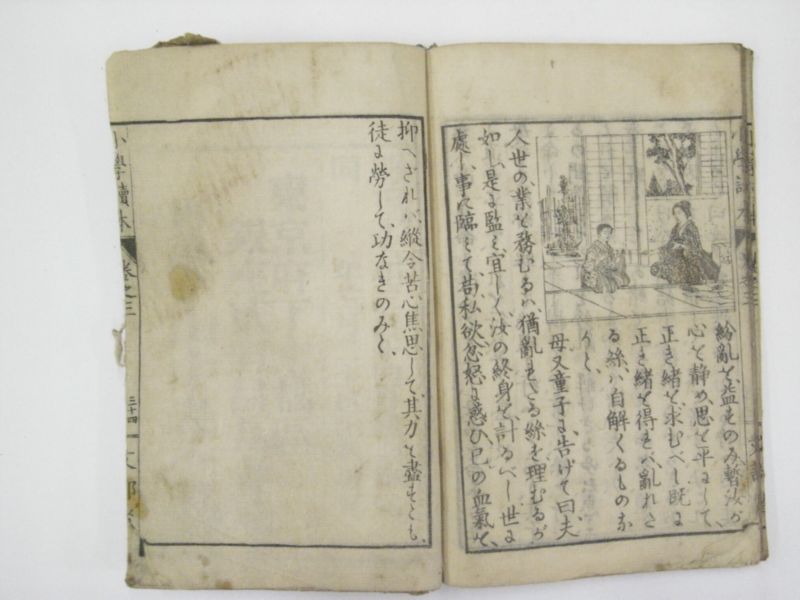 紛亂を益すのみ暫汝が
心を静め思を平にして、
正き緒を求むべし既に
正き緒を得れバ亂れた
る絲ハ自解くるものな
りと、
母又童子に告げて曰、夫
人世の業を務むるハ、猶亂れたる絲を理むるが
如し、是に監み、宜しく汝の終身を計るべし世に
處し、事に臨みて、苟私欲忿怒に惑ひ、己の血氣を、
抑へざれバ、縱令苦心焦思して、其力を盡すとも、
徒に勞して、功なきのみと、
小學讀本
卷之三
三十四
文部省